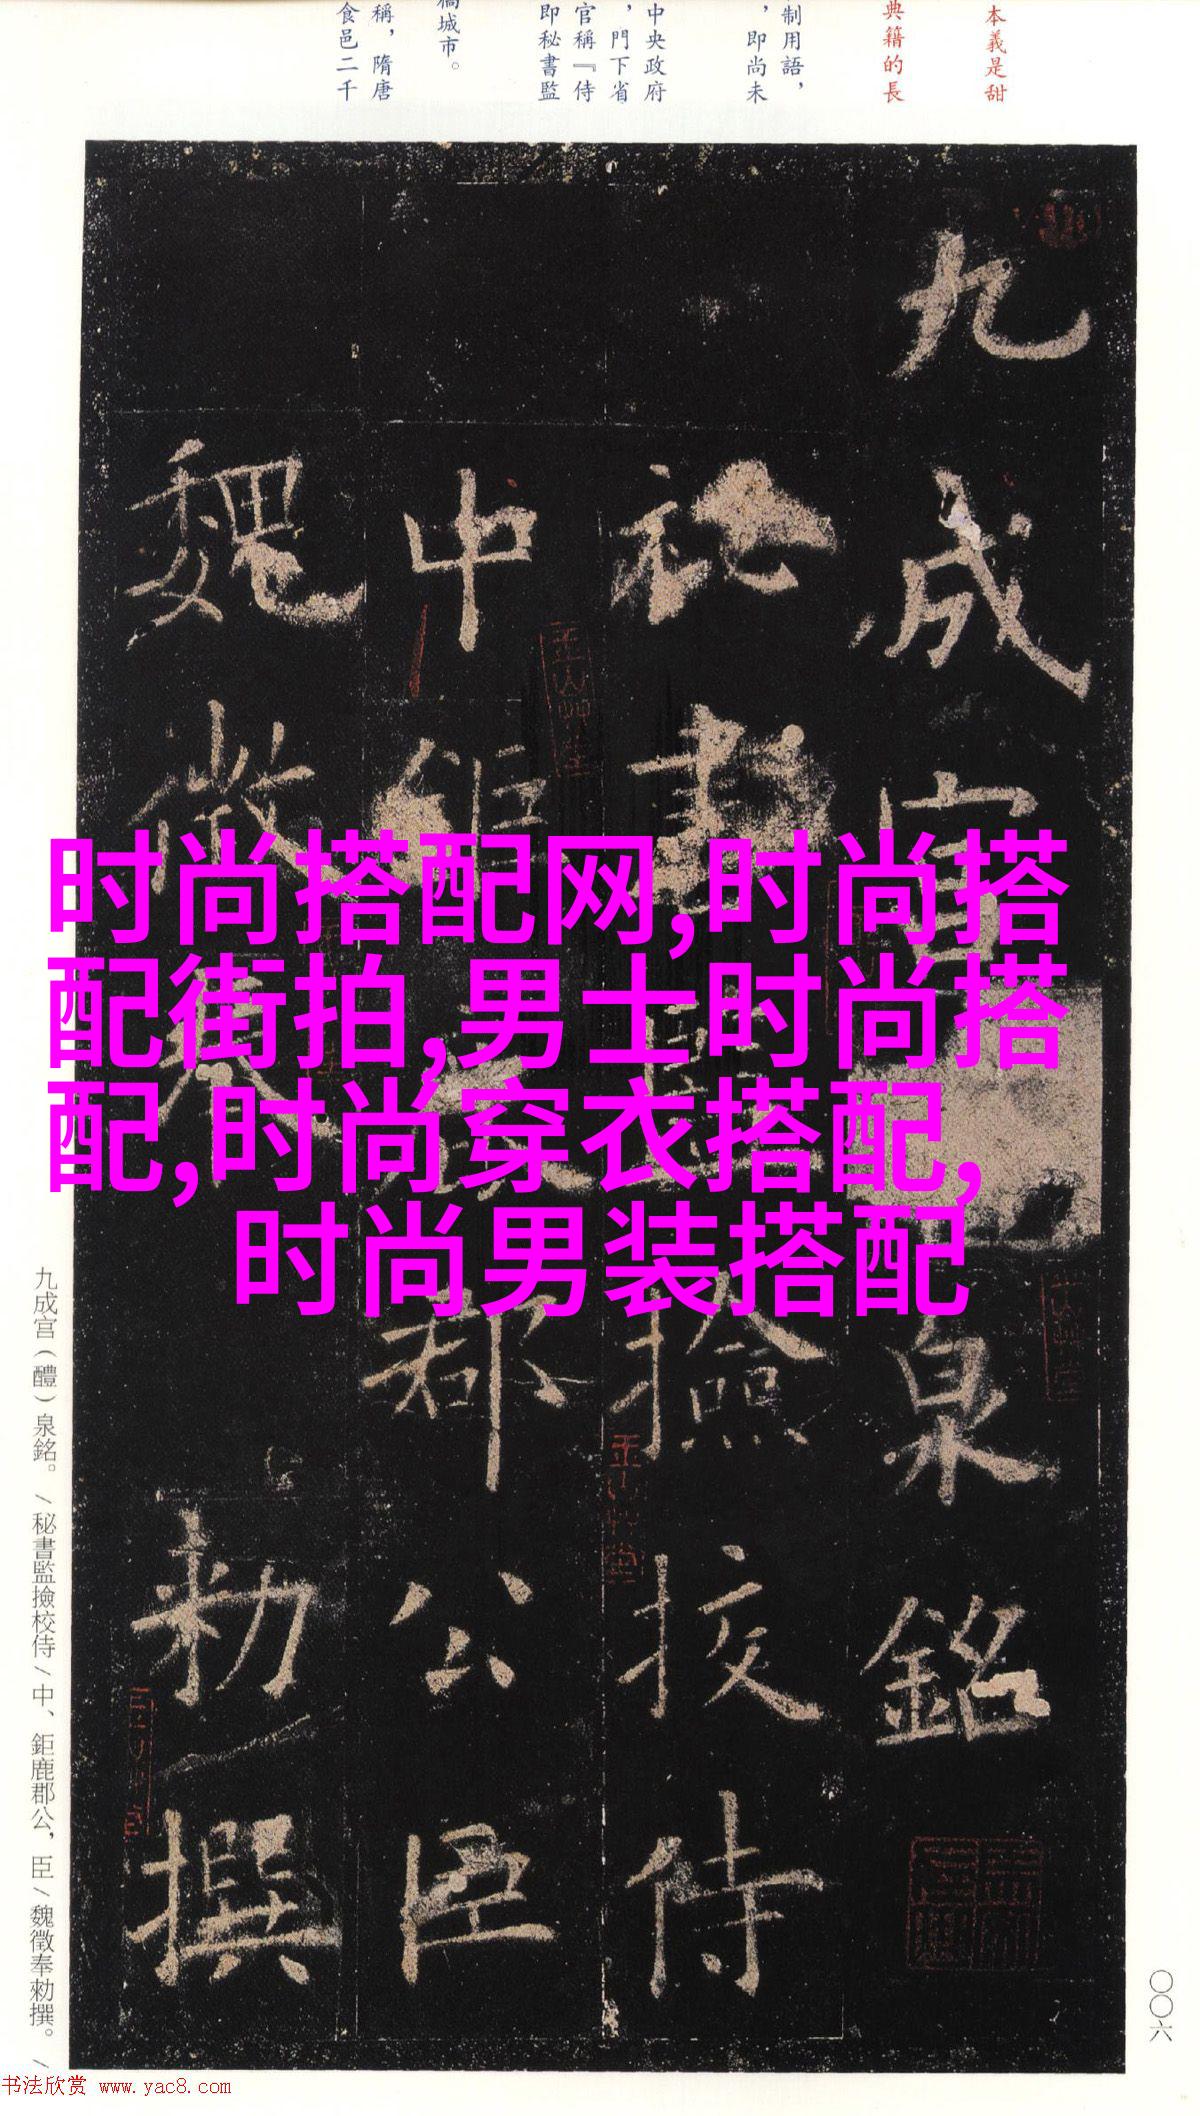 本義是甜
典籍的長
制用語，
，即尚未
中央政府
，門下省
官稱『侍
即秘書監
稿城市。
稱，隋唐
食邑二千
九成宫
泉銘
祕書監撿挍侍
中
郡公臣
魏徵奉
勑撰
时尚搭配网,时尚搭
配街拍,男士时尚搭
配,时尚穿衣搭配,
时尚男装搭配
九成宫（醴）泉銘。/秘書監撿校侍/中、鉅鹿郡公，臣/魏徵奉勑撰。/
〇〇六
书法欣赏 www.yac8.com